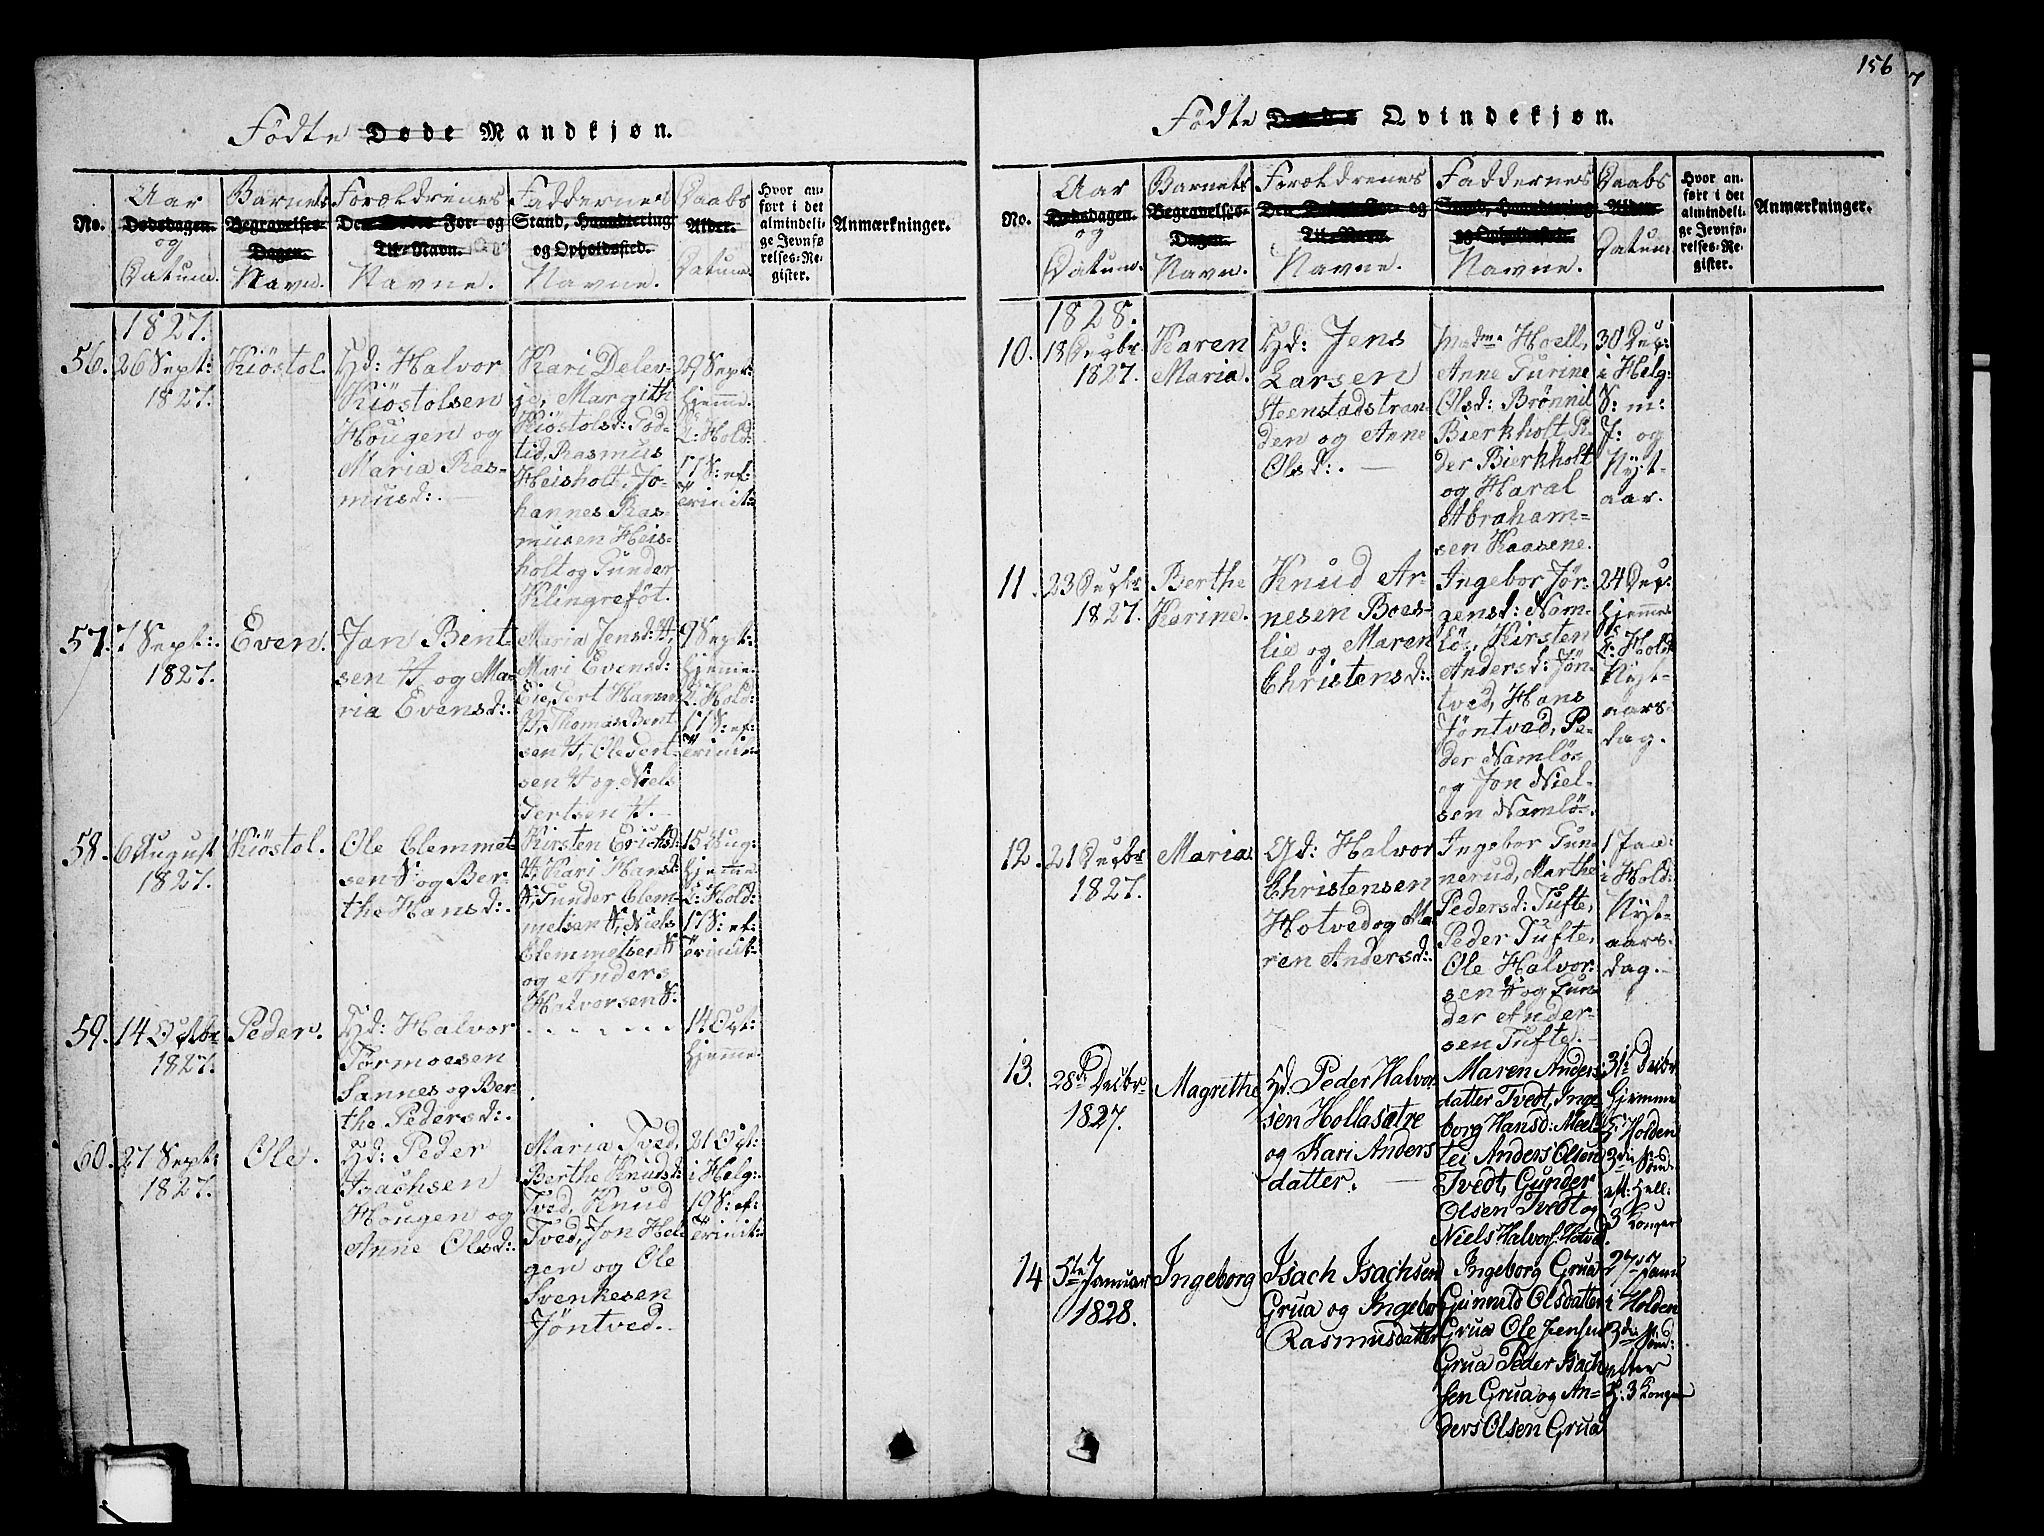 156
7
Fødte Døde Mandkjøn.
No.
Aar
Dødsdagen.
og
Datum.
Barnets
Begravelses-
Dagen.
Navn.
Forældrenes
Den Dødes For- og
Til-Navn.
Navne.
Faddernes
Stand, Haandtering
og Opholdssted.
Navne.
Daabs
Alder.
Datum.
Hvor an-
ført i det
almindeli-
ge Jevnfø
relses-Re-
gister.
Anmærkninger.
1827.
56.
26 Sept:
1827.
Kiöstol.
Gd: Halvor
Kiöstolsen
Hougen og
Maria Ras-
musd:.
Kari Delev-
je, Margith
Kiöstolsd: God-
tid, Rasmus
Heisholt, Jo-
hannes Ras-
musen Heis-
holt og Gunder
Klingrefot.
29 Sept:
hjemme.
i: Hold:
17 S: ef:
trinit:
57.
7 Sept:
1827.
Even.
Jan Bent-
sen H og Ma-
ria Evensd:.
Maria Jensd: H,
Mari Evensd:
Eie, Gert Hansen
H, Thomas Bent
sen H, Ole Gert-
sen H og Niels
Gertsen H.
9 Sept:
hjemme.
i: Hold:
17 S: ef:
trinit:
58.
6 August
1827.
Kiöstol.
Ole Clemmet
sen H og Ber-
the Hansd:.
Kirsten Erichsd:
H, Kari Hansd:
H, Gunder Clem-
metsen H, Niels
Clemmetsen H
og Anders
Halvorsen H:
15 Aug:
hjemme.
i: Hold:
17 S: ef:
trinit:
59.
14 Octbr
1827.
Peder.
Gd: Halvor
Tormoesen
Sannes og Ber-
the Pedersd:.
14 Oct:
hjemme.
60.
27 Sept:
1827.
Ole.
Gd: Peder
Isachsen
Hougen og
Anne Olsd:.
Maria Tved,
Berthe Knudsd:
Tved, Knud
Tved, Jon Hel-
gen og Ole
Svenkesen
Jöntved.
21 Oct:
i Helg:
19 S: ef:
trinit:
Fødte Døde Qvindekjøn.
No.
Aar
Dødsdagen.
og
Datum.
Barnets
Begravelses-
Dagen.
Navn.
Forældrenes
Den Dødes For- og
Til-Navn.
Navne.
Faddernes
Stand, Haandtering
og Opholdssted.
Navne.
Daabs
Alder.
Datum.
Hvor an-
ført i det
almindeli-
ge Jevnfø-
relses-Re-
gister.
Anmærkninger.
1828.
10.
18 Decbr
1827.
Karen
Maria.
Gd: Jens
Larsen
Steenstadstran
den og Anne
Olsd:.
Madme Hoell,
Anne Gurine
Olsd: Brønnil
Bierkholt Pe
der Bierkholt
og Haral
Abraham-
sen Kaasene.
30 Dec:
i Helg:
S: m:
J: og
Nyt-
aar.
11.
23 Decbr
1827.
Berthe
Karine.
Knud Ar-
nesen Boes-
lie og Maren
Christensd:.
Ingebor Jör-
gensd: Nom-
lös, Kirsten
Andersd: Jön-
tved, Hans
Jöntved, Pe-
der Namlös
og Jon Niel-
sen Namlös.
24 Dec:
hjemme
i: Hold:
Nyt-
aars-
dag.
12.
21 Decbr
1827.
Maria.
Gd: Halvor
Christensen
Hotved og Ma
ren Andersd:.
Ingebor Gun-
nerud, Marthe
Pedersd: Tufte,
Peder Tufte,
Ole Halvor-
sen H og Gun-
der Ander-
sen Tufte.
1 Jan:
i Hold:
Nyt-
aars-
dag.
13.
28de Decbr
1827.
Magrethe
Gd. Peder Halvor
sen Hollasætre
og Kari Anders
datter.
Maren Anders
datter Tvedt, Inge
borg Hansd: Mæel-
tei Anders Olsen
Tvedt, Gunder
Olsen Tvedt og
Niels Halvors: Hotved.
31te Decbr
hjemme
i Holden
3die Sönd.
eft: Hell:
3 Konger
14
5te Januar
1828.
Ingeborg
Isach Isachsen
Grua og Ingebor
Rasmusdatter
Ingeborg Grua
Gunnild Olsdatter
Grua Ole Jensen
Grua Peder Isach
sen Grua og An-
ders Olsen Grua
27de Janu
i Holden
3die Sönd:
efter
H: 3 Konger